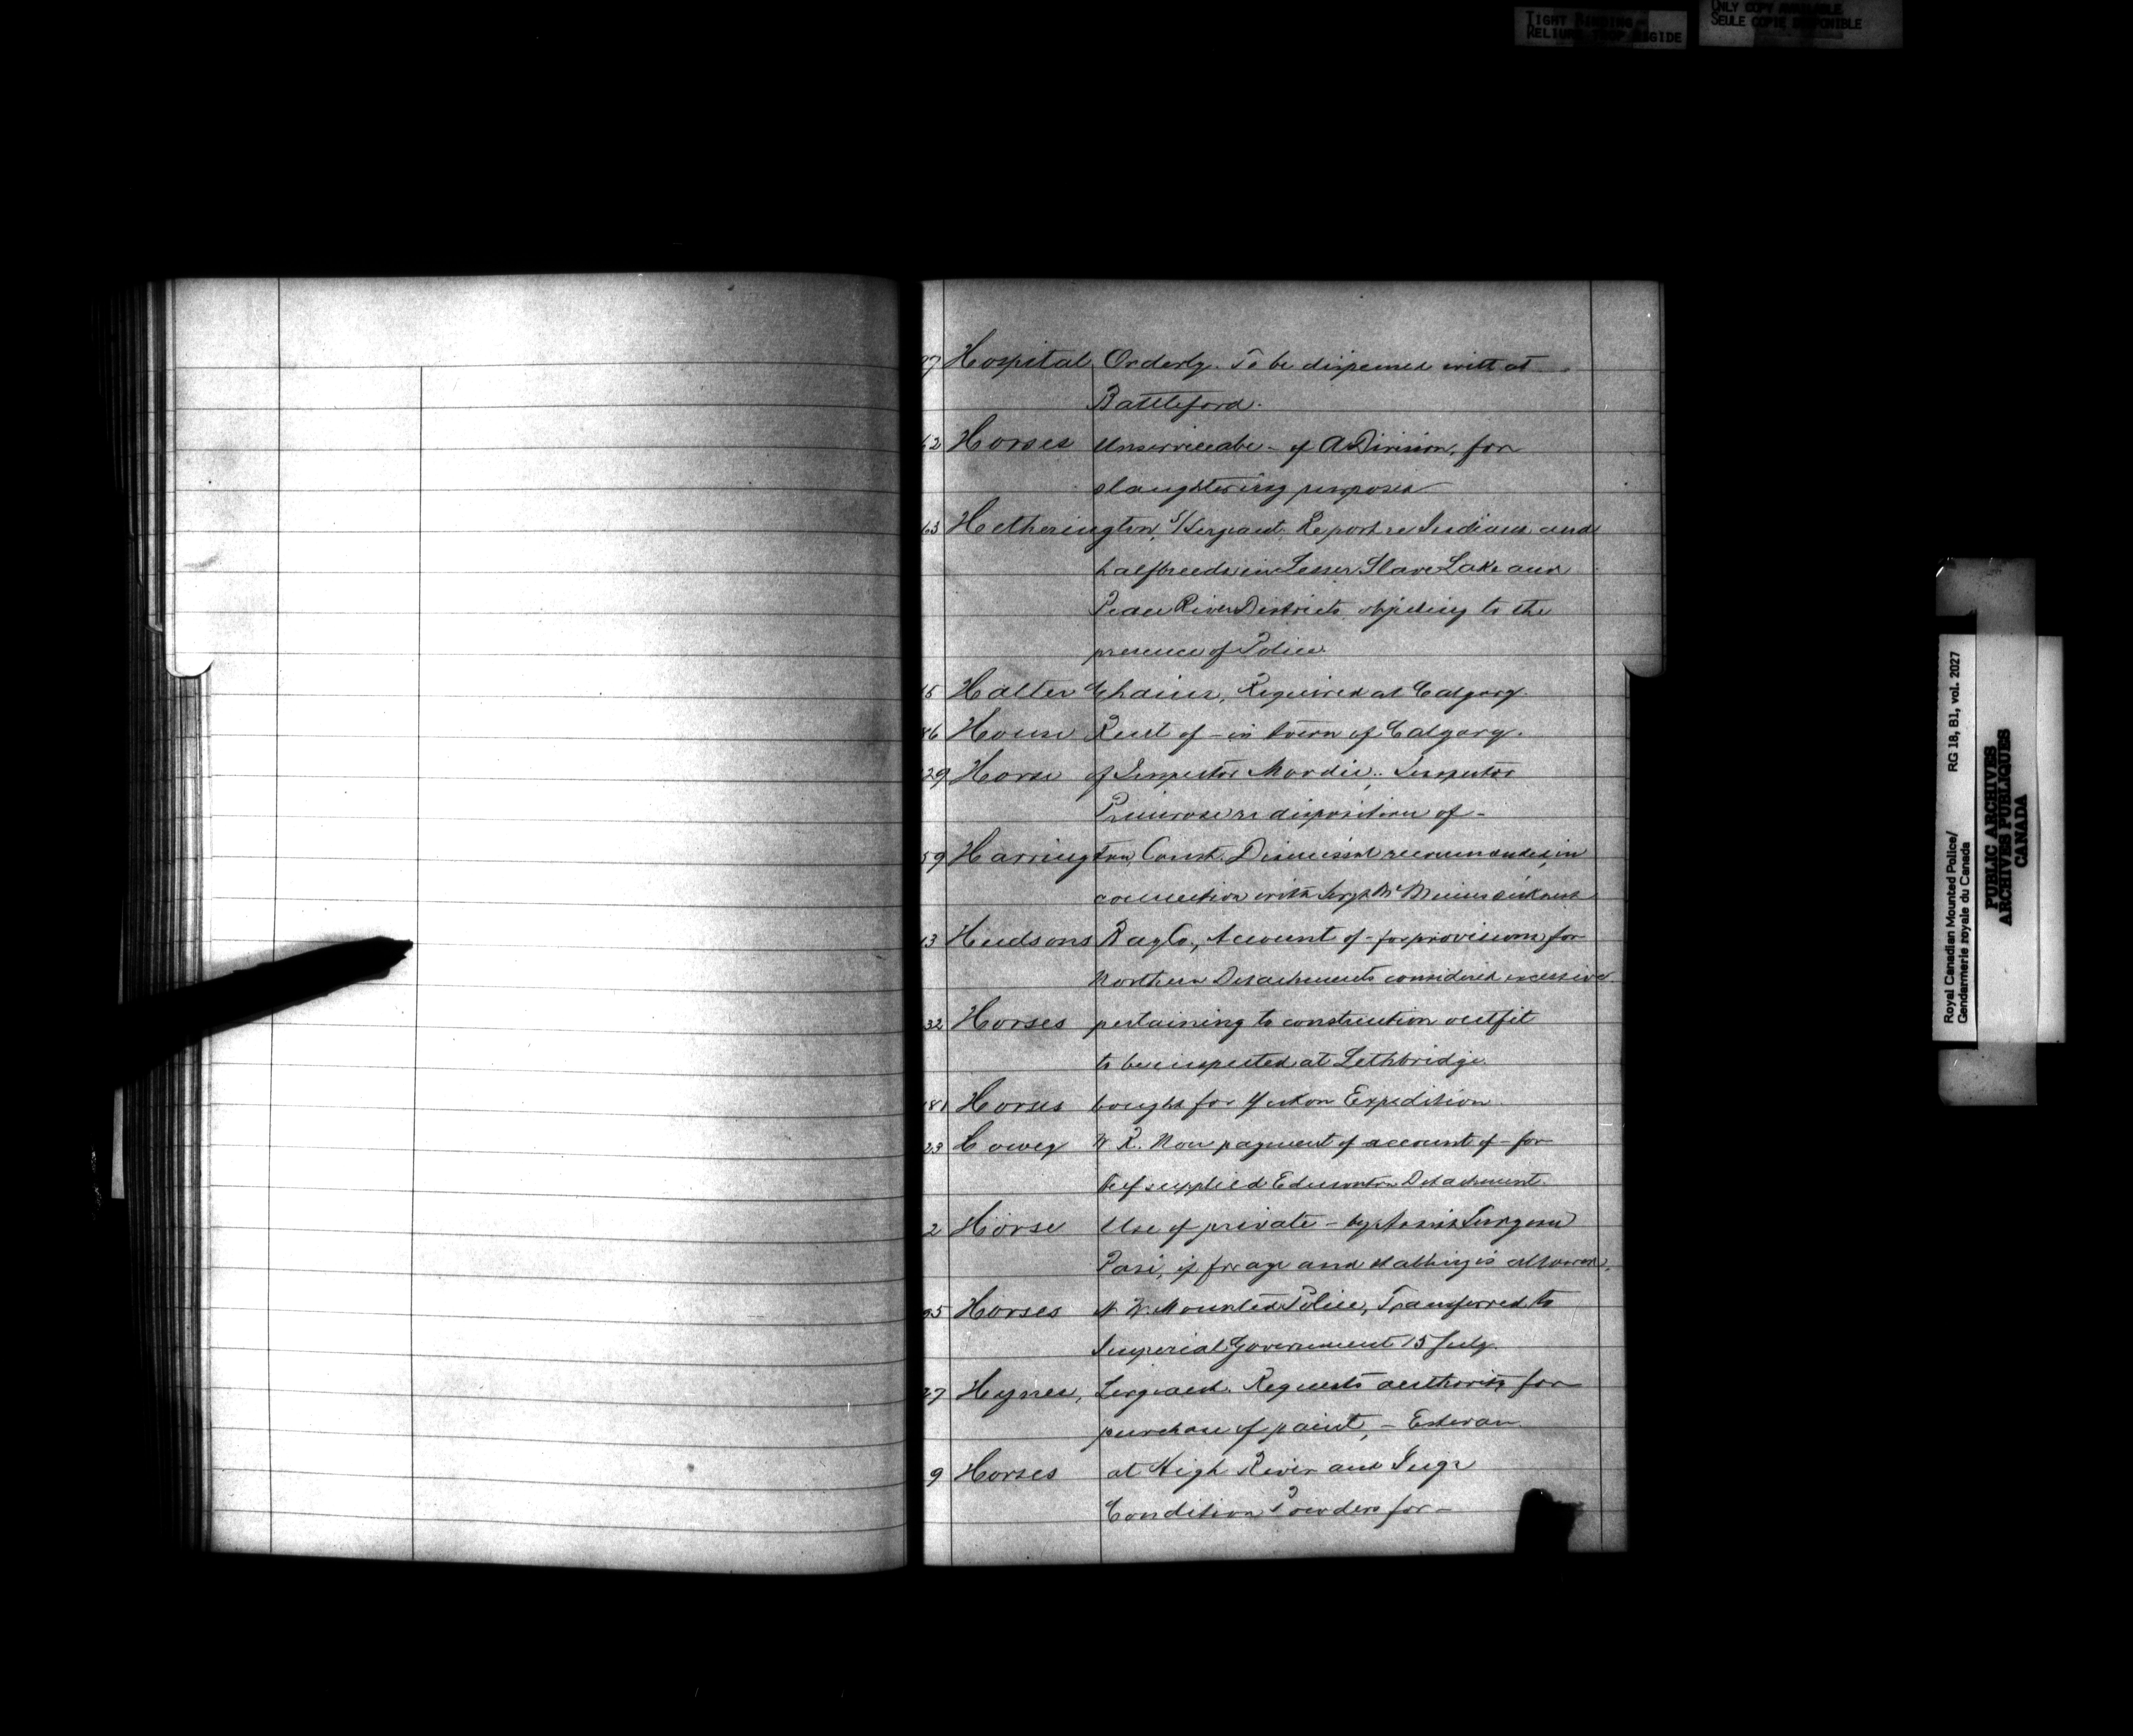 TIGHT BINDING
RELIURE TROP RIGIDE
ONLY COPY AVAILABLE
SEULE COPIE DISPONIBLE
97 Hospital Orderly. To be dispensed with at
Battleford.
62 Horses Unserviceable - of A Division, for
slaughtering purposes
63 Hetherington, S/Sergeant. Report re Indians and
halfbreeds in Lesser Slave Lake and
Peace River Districts objecting to the
presence of Police
15 Halter Chains, Required at Calgary.
86 House Rent of - in town of Calgary.
29 Horse of Inspector Moodie. Inspector
Primrose re disposition of -
59 Harrington, Const. Dismissal recommended, in
connection with Sergt
13 Hudsons Bay Co., Account of - for provisions for
Northern Detachments considered excessive.
32 Horses pertaining to construction outfit
to be inspected at Lethbridge
181 Horses bought for Yukon Expedition
23 Howey W. R. Non payment of account of - for
beef supplied Edmonton Detachment.
2 Horse Use of private - by Assist Surgeon
Paré, if forage and stabling is allowed.
95 Horses N. W. Mounted Police, Transferred to
Imperial Government 15 July.
27 Hynes, Sergeant. Requests authority for
purchase of paint, - Estevan
9 Horses at High River and
Condition Powders for -
Royal Canadian Mounted Police/ RG 18, B1, vol. 2027
Gendarmerie royale du Canada
PUBLIC ARCHIVES
ARCHIVES PUBLIQUES
CANADA